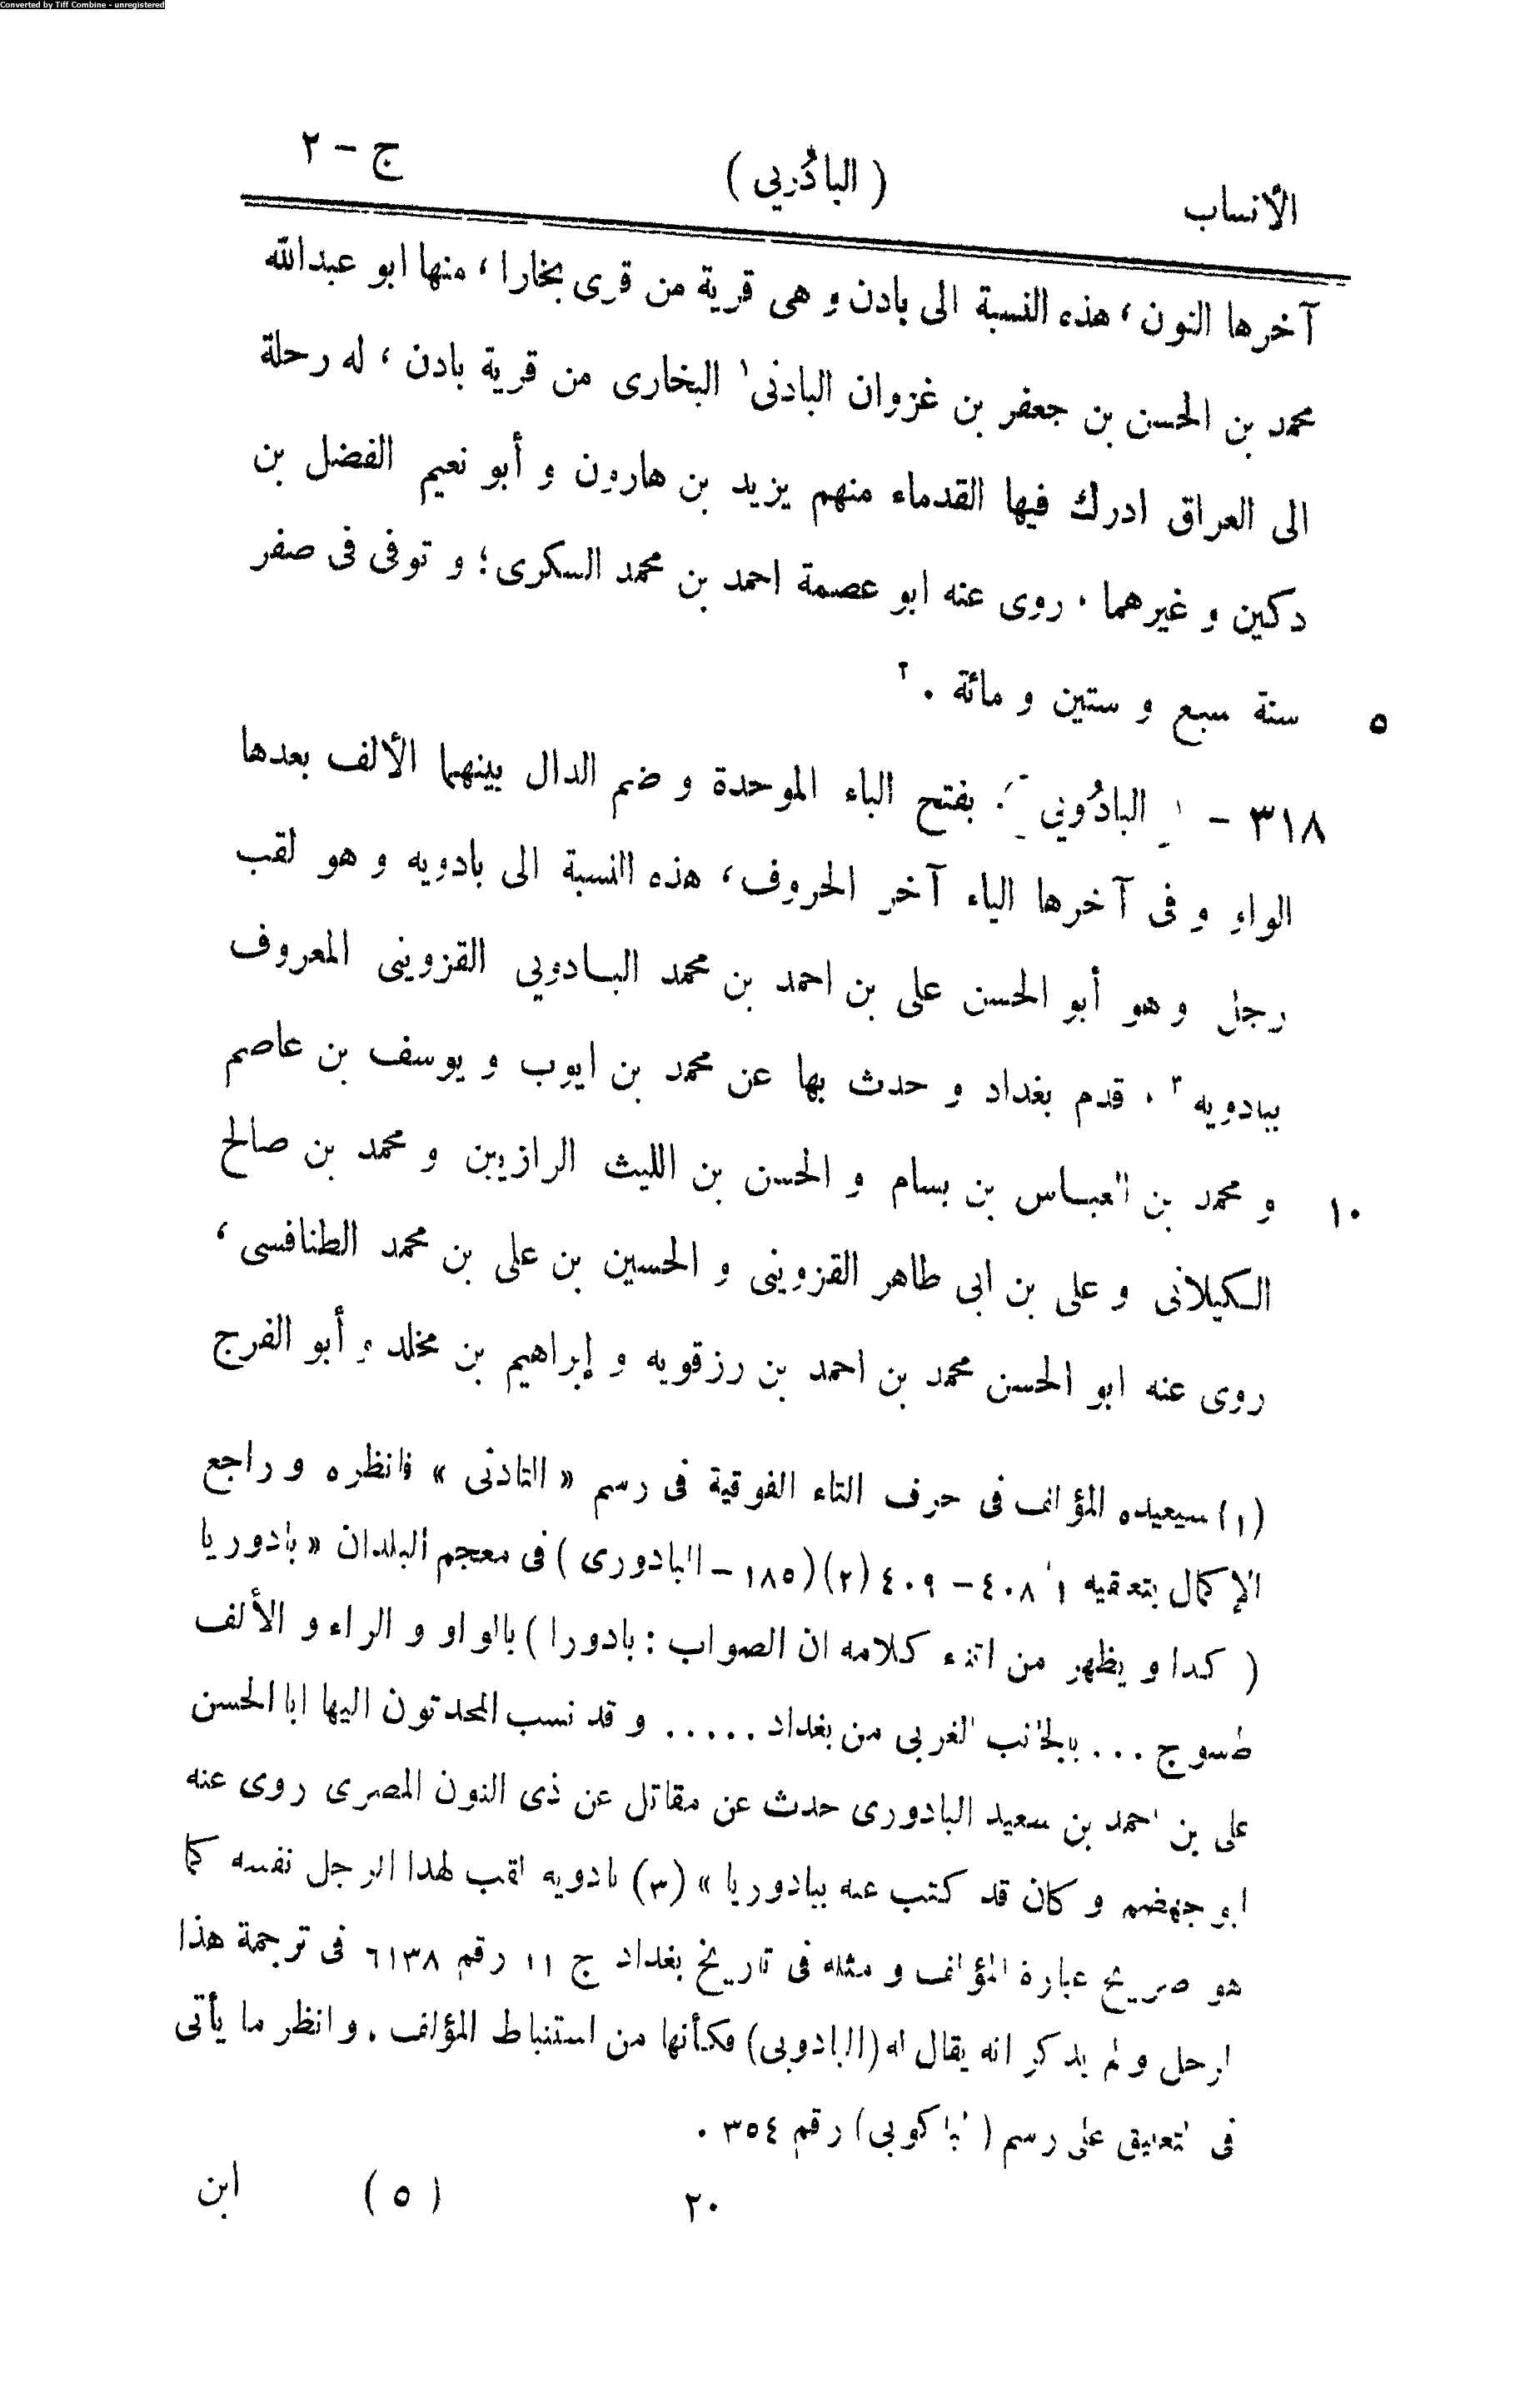 Converted by Tiff Combine - unregistered
الأنساب ( البادُويي ) ج - ٢
آخرها النون ، هذه النسبة الى بادن و هى قرية من قرى بخارا ، منها ابو عبدالله
محمد بن الحسن بن جعفر بن غزوان البادنى١ البخارى من قرية بادن ، له رحلة
الى العراق ادرك فيها القدماء منهم يزيد بن هارون و أبو نعيم الفضل بن
دكين و غيرهما . روى عنه ابو عصمة احمد بن محمد السكرى ؛ و توفى فى صفر
سنة سبع و ستين و مائة .٢ ٥
٣١٨ - البادُويي بفتح الباء الموحدة و ضم الدال بينهما الألف بعدها
الواو و فى آخرها الياء آخر الحروف ، هذه النسبة الى بادويه و هو لقب
رجل و هو أبو الحسن على بن احمد بن محمد البـادويي القزوينى المعروف
ببادويه٣ . قدم بغداد و حدث بها عن محمد بن ايوب و يوسف بن عاصم
و محمد بن العبـاس بن بسام و الحسن بن الليث الرازيين و محمد بن صالح ١٠
الـكيلانى و على بن ابى طاهر القزوينى و الحسين بن على بن محمد الطنافسى ،
روى عنه ابو الحسن محمد بن احمد بن رزقويه و إبراهيم بن مخلد و أبو الفرج
(١) سيعيده المؤلف فى حرف التاء الفوقية فى رسم « التادنى » فانظره و راجع
الإكمال بتعقيه ١/ ٤٠٨ - ٤٠٩ (٢) (١٨٥ - البادورى ) فى معجم البلدان « بادوريا
( كدا و يظهر من اثناء كلامه ان الصواب : بادورا ) بالواو و الراء و الألف
طسوج ... بالجانب الغربى من بغداد ..... و قد نسب المحدثون اليها ابا الحسن
على بن احمد بن سعيد البادورى حدث عن مقاتل عن ذى النون المصرى روى عنه
ابو جهضم و كان قد كتب عنه ببادوريا » (٣) بادويه لقب لهذا الرجل نفسه كما
هو صريح عبارة المؤلف و مثله فى تاريخ بغداد ج ١١ رقم ٦١٣٨ فى ترجمة هذا
الرجل و لم يذكر انه يقال له (البادويى) فكأنها من استنباط المؤلف . و انظر ما يأتى
فى التعليق على رسم ( الباكويى) رقم ٣٥٤ .
٢٠ ( ٥ ) ابن